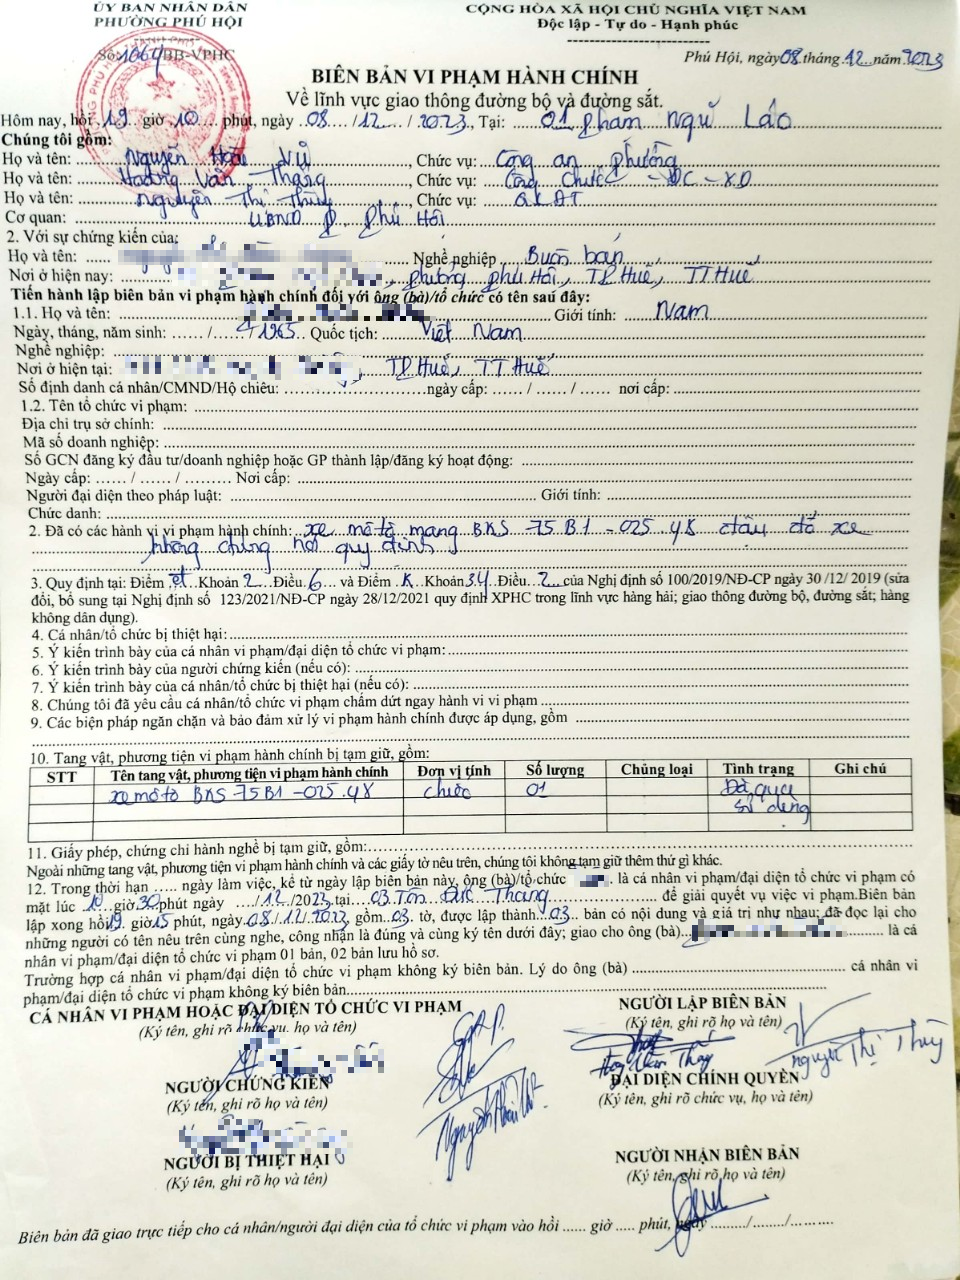 ỦY BAN NHÂN DÂN
PHƯỜNG PHÚ HỘI
CỘNG HÒA XÃ HỘI CHỦ NGHĨA VIỆT NAM
Độc lập - Tự do - Hạnh phúc
Số: 1064/BB-VPHC
Phú Hội, ngày 08 tháng 12 năm 2023
BIÊN BẢN VI PHẠM HÀNH CHÍNH
Về lĩnh vực giao thông đường bộ và đường sắt.
Hôm nay, hồi 19 giờ 10 phút, ngày 08 / 12 / 2023, Tại: 01 Phạm Ngũ Lão
Chúng tôi gồm:
Họ và tên: Nguyễn Hoài Vũ, Chức vụ: Công an phường
Họ và tên: Hoàng Văn Thắng, Chức vụ: Công chức ĐC-XD
Họ và tên: Nguyễn Thị Thùy, Chức vụ: QLĐT
Cơ quan: UBND P Phú Hội
2. Với sự chứng kiến của:
Họ và tên: Nghề nghiệp Buôn bán
Nơi ở hiện nay: phường Phú Hội, TP Huế, TT Huế
Tiến hành lập biên bản vi phạm hành chính đối với ông (bà)/tổ chức có tên sau đây:
1.1. Họ và tên: Giới tính: Nam
Ngày, tháng, năm sinh: ...... / ...... / 1965 Quốc tịch: Việt Nam
Nghề nghiệp:
Nơi ở hiện tại: TP Huế, TT Huế
Số định danh cá nhân/CMND/Hộ chiếu: ngày cấp: ...... / ...... / ...... nơi cấp:
1.2. Tên tổ chức vi phạm:
Địa chỉ trụ sở chính:
Mã số doanh nghiệp:
Số GCN đăng ký đầu tư/doanh nghiệp hoặc GP thành lập/đăng ký hoạt động:
Ngày cấp: ...... / ...... / ......... Nơi cấp:
Người đại diện theo pháp luật: Giới tính:
Chức danh:
2. Đã có các hành vi vi phạm hành chính: xe mô tô mang BKS 75B1-025.48 đậu đỗ xe
không đúng nơi quy định
3. Quy định tại: Điểm Khoản 2 Điều 6 và Điểm K Khoản 34 Điều 2 của Nghị định số 100/2019/NĐ-CP ngày 30 /12/ 2019 (sửa
đổi, bổ sung tại Nghị định số 123/2021/NĐ-CP ngày 28/12/2021 quy định XPHC trong lĩnh vực hàng hải; giao thông đường bộ, đường sắt; hàng
không dân dụng).
4. Cá nhân/tổ chức bị thiệt hại:
5. Ý kiến trình bày của cá nhân vi phạm/đại diện tổ chức vi phạm:
6. Ý kiến trình bày của người chứng kiến (nếu có):
7. Ý kiến trình bày của cá nhân/tổ chức bị thiệt hại (nếu có):
8. Chúng tôi đã yêu cầu cá nhân/tổ chức vi phạm chấm dứt ngay hành vi vi phạm
9. Các biện pháp ngăn chặn và bảo đảm xử lý vi phạm hành chính được áp dụng, gồm
10. Tang vật, phương tiện vi phạm hành chính bị tạm giữ, gồm:
STT Tên tang vật, phương tiện vi phạm hành chính Đơn vị tính Số lượng Chủng loại Tình trạng Ghi chú
xe mô tô BKS 75B1-025.48 chiếc 01 Đã qua
sử dụng
11. Giấy phép, chứng chỉ hành nghề bị tạm giữ, gồm:
Ngoài những tang vật, phương tiện vi phạm hành chính và các giấy tờ nêu trên, chúng tôi không tạm giữ thêm thứ gì khác.
12. Trong thời hạn ..... ngày làm việc, kể từ ngày lập biên bản này, ông (bà)/tổ chức là cá nhân vi phạm/đại diện tổ chức vi phạm có
mặt lúc 10 giờ 30 phút ngày ..../12/2023 tại 03 Tôn Đức Thắng để giải quyết vụ việc vi phạm.Biên bản
lập xong hồi 19 giờ 15 phút, ngày 08/12/2023 gồm 03 tờ, được lập thành 03 bản có nội dung và giá trị như nhau; đã đọc lại cho
những người có tên nêu trên cùng nghe, công nhận là đúng và cùng ký tên dưới đây; giao cho ông (bà) là cá
nhân vi phạm/đại diện tổ chức vi phạm 01 bản, 02 bản lưu hồ sơ.
Trường hợp cá nhân vi phạm/đại diện tổ chức vi phạm không ký biên bản. Lý do ông (bà) cá nhân vi
phạm/đại diện tổ chức vi phạm không ký biên bản
CÁ NHÂN VI PHẠM HOẶC ĐẠI DIỆN TỔ CHỨC VI PHẠM
(Ký tên, ghi rõ chức vụ, họ và tên)
NGƯỜI LẬP BIÊN BẢN
(Ký tên, ghi rõ họ và tên)
Nguyễn Thị Thùy
NGƯỜI CHỨNG KIẾN
(Ký tên, ghi rõ họ và tên)
Nguyễn Hoài Vũ
ĐẠI DIỆN CHÍNH QUYỀN
(Ký tên, ghi rõ chức vụ, họ và tên)
NGƯỜI BỊ THIỆT HẠI
(Ký tên, ghi rõ họ và tên)
NGƯỜI NHẬN BIÊN BẢN
(Ký tên, ghi rõ họ và tên)
Biên bản đã giao trực tiếp cho cá nhân/người đại diện của tổ chức vi phạm vào hồi ...... giờ ..... phút, ngày ......../......../..........